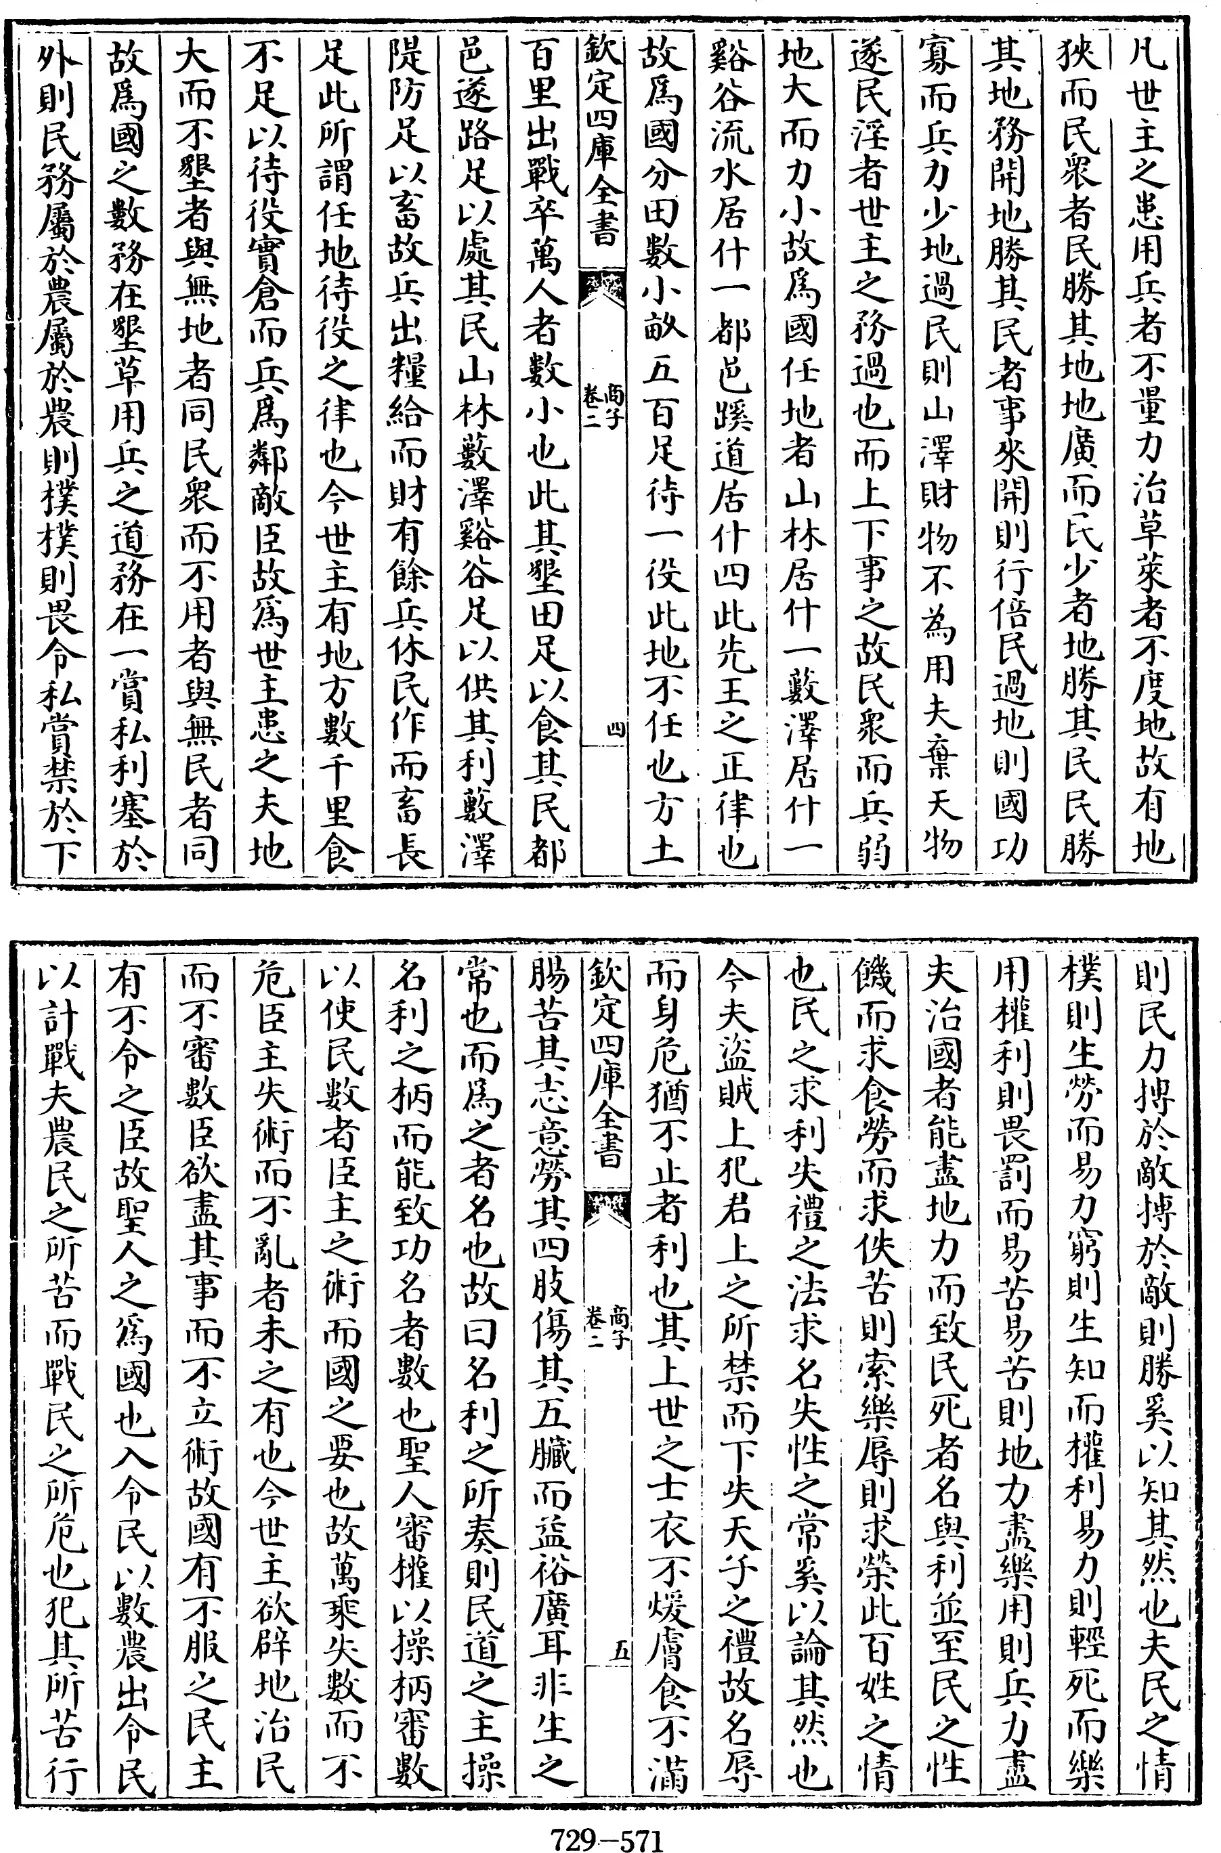 凡世主之患用兵者不量力治草萊者不度地故有地
狹而民衆者民勝其地地廣而民少者地勝其民民勝
其地務開地勝其民者事來開則行倍民過地則國功
寡而兵力少地過民則山澤財物不為用夫棄天物
遂民淫者世主之務過也而上下事之故民衆而兵弱
地大而力小故爲國任地者山林居什一藪澤居什一
谿谷流水居什一都邑蹊道居什四此先王之正律也
故爲國分田數小畝五百足待一役此地不任也方土
欽定四庫全書
商子
卷二
四
百里出戰卒萬人者數小也此其墾田足以食其民都
邑遂路足以處其民山林藪澤谿谷足以供其利藪澤
隄防足以畜故兵出糧給而財有餘兵休民作而畜長
足此所謂任地待役之律也今世主有地方數千里食
不足以待役實倉而兵爲鄰敵臣故爲世主患之夫地
大而不墾者與無地者同民衆而不用者與無民者同
故爲國之數務在墾草用兵之道務在一賞私利塞於
外則民務屬於農屬於農則樸樸則畏令私賞禁於下
則民力摶於敵摶於敵則勝奚以知其然也夫民之情
樸則生勞而易力窮則生知而權利易力則輕死而樂
用權利則畏罰而易苦易苦則地力盡樂用則兵力盡
夫治國者能盡地力而致民死者名與利並至民之性
饑而求食勞而求佚苦則索樂辱則求榮此百姓之情
也民之求利失禮之法求名失性之常奚以論其然也
今夫盜賊上犯君上之所禁而下失天子之禮故名辱
而身危猶不止者利也其上世之士衣不煖膚食不滿
欽定四庫全書
商子
卷二
五
腸苦其志意勞其四肢傷其五臟而益裕廣耳非生之
常也而爲之者名也故曰名利之所奏則民道之主操
名利之柄而能致功名者數也聖人審權以操柄審數
以使民數者臣主之術而國之要也故萬乘失數而不
危臣主失術而不亂者未之有也今世主欲辟地治民
而不審數臣欲盡其事而不立術故國有不服之民主
有不令之臣故聖人之爲國也入令民以數農出令民
以計戰夫農民之所苦而戰民之所危也犯其所苦行
729-571